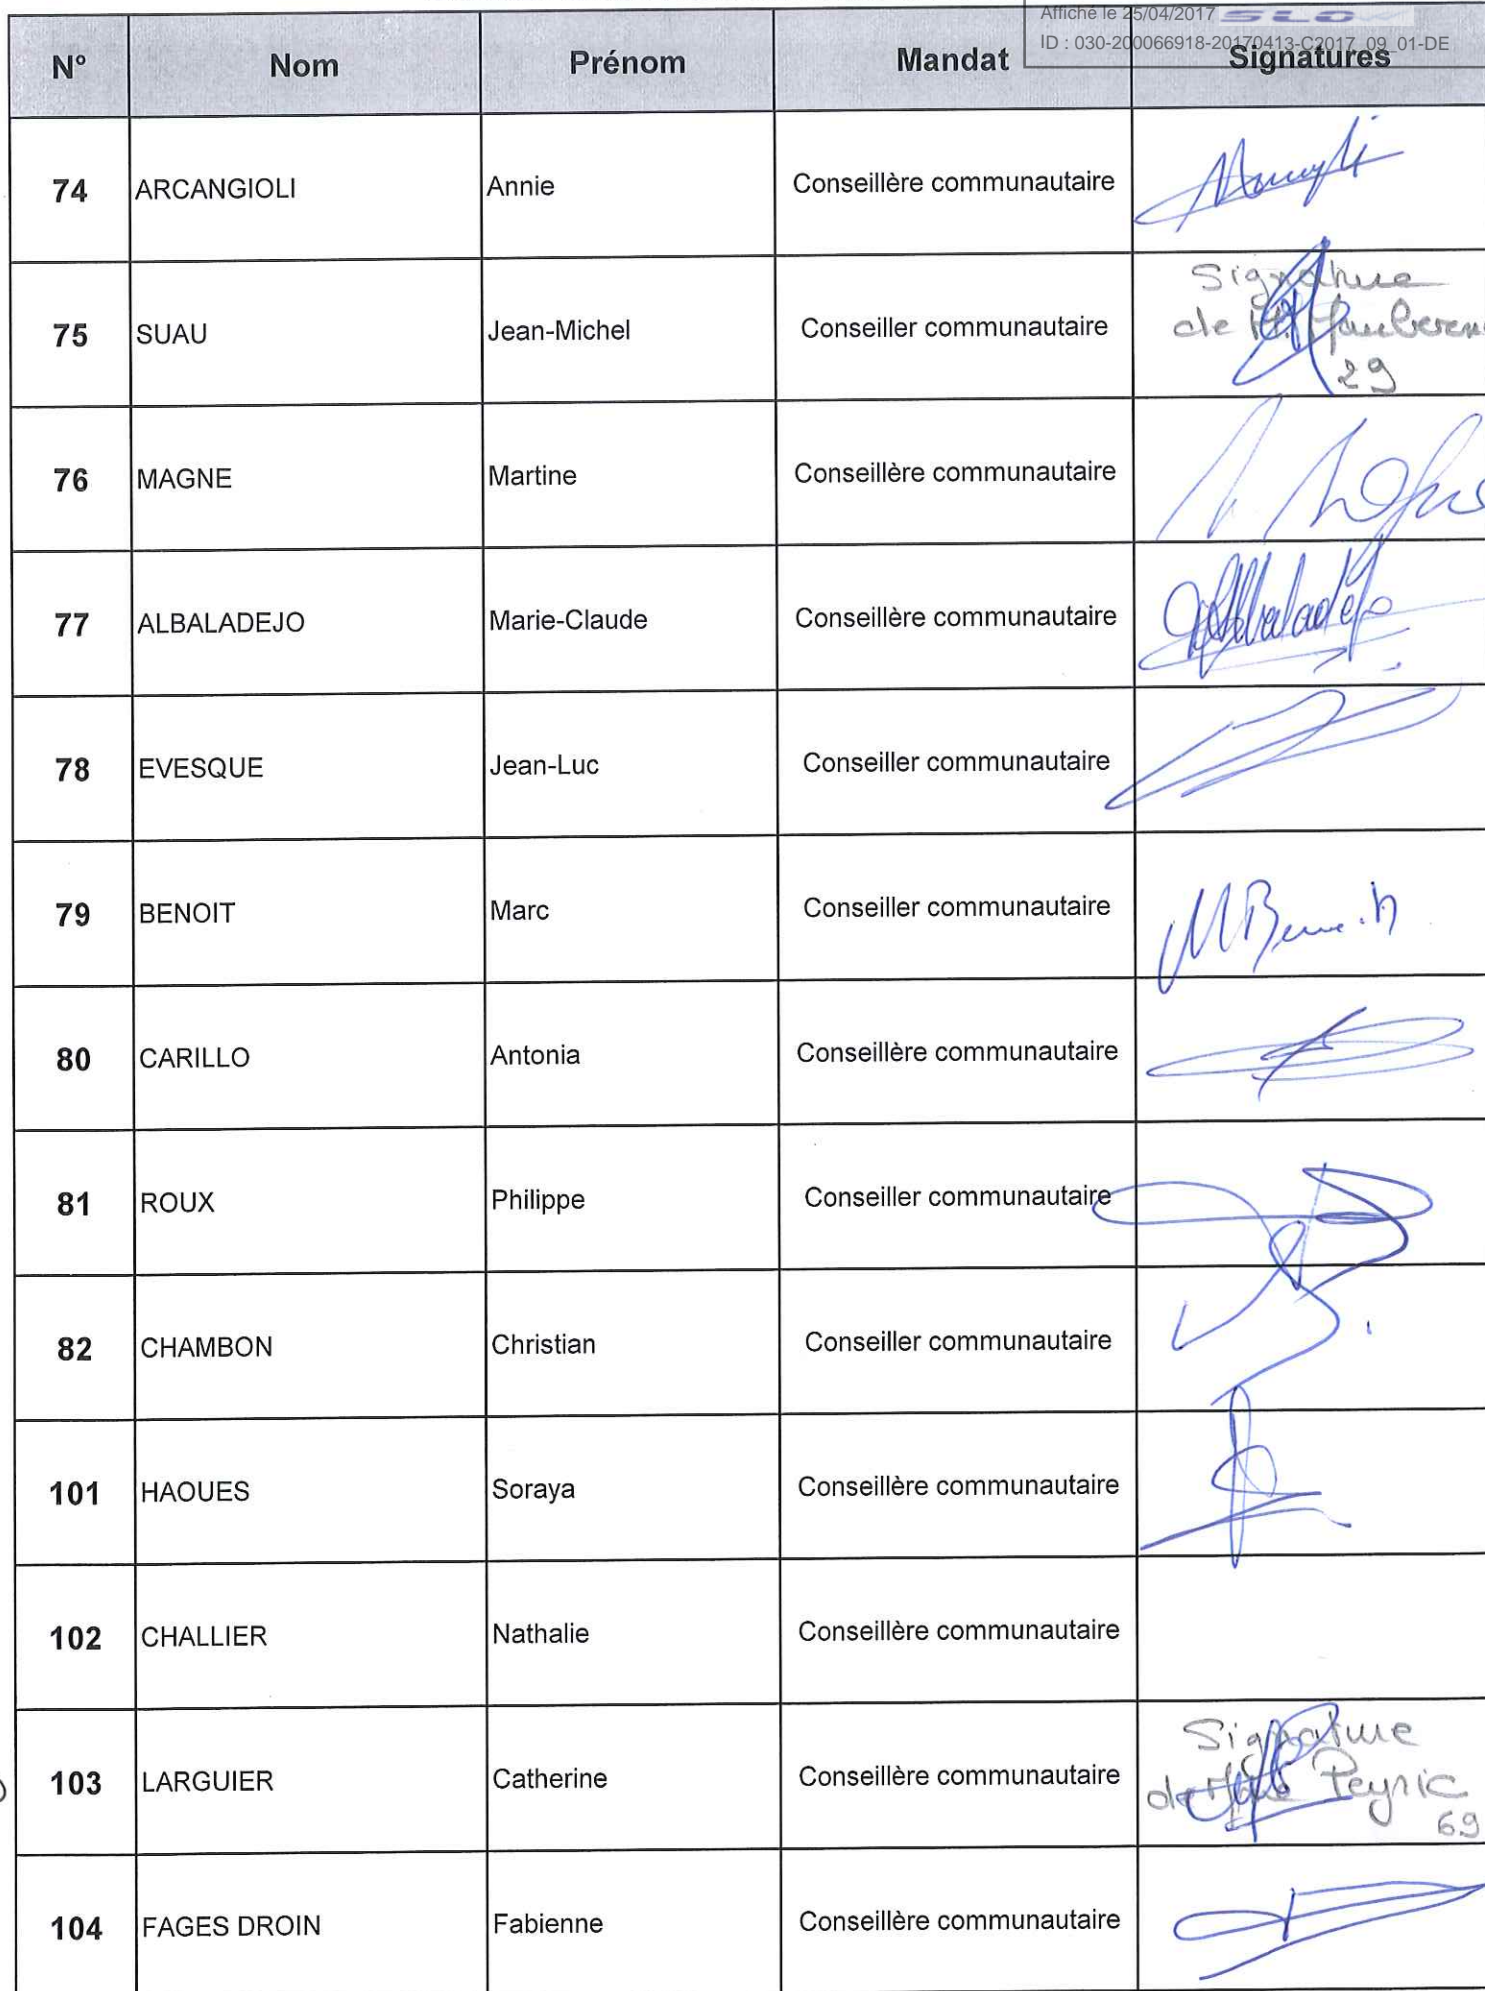 Affiché le 25/04/2017 SLOW
ID : 030-200066918-20170413-C2017_09_01-DE
N° Nom Prénom Mandat Signatures
74 ARCANGIOLI Annie Conseillère communautaire
75 SUAU Jean-Michel Conseiller communautaire
Signature
de
29
76 MAGNE Martine Conseillère communautaire
77 ALBALADEJO Marie-Claude Conseillère communautaire Albaladejo
78 EVESQUE Jean-Luc Conseiller communautaire
79 BENOIT Marc Conseiller communautaire MBenoit
80 CARILLO Antonia Conseillère communautaire
81 ROUX Philippe Conseiller communautaire
82 CHAMBON Christian Conseiller communautaire
101 HAOUES Soraya Conseillère communautaire
102 CHALLIER Nathalie Conseillère communautaire
103 LARGUIER Catherine Conseillère communautaire
Signature
de Peyric
69
104 FAGES DROIN Fabienne Conseillère communautaire